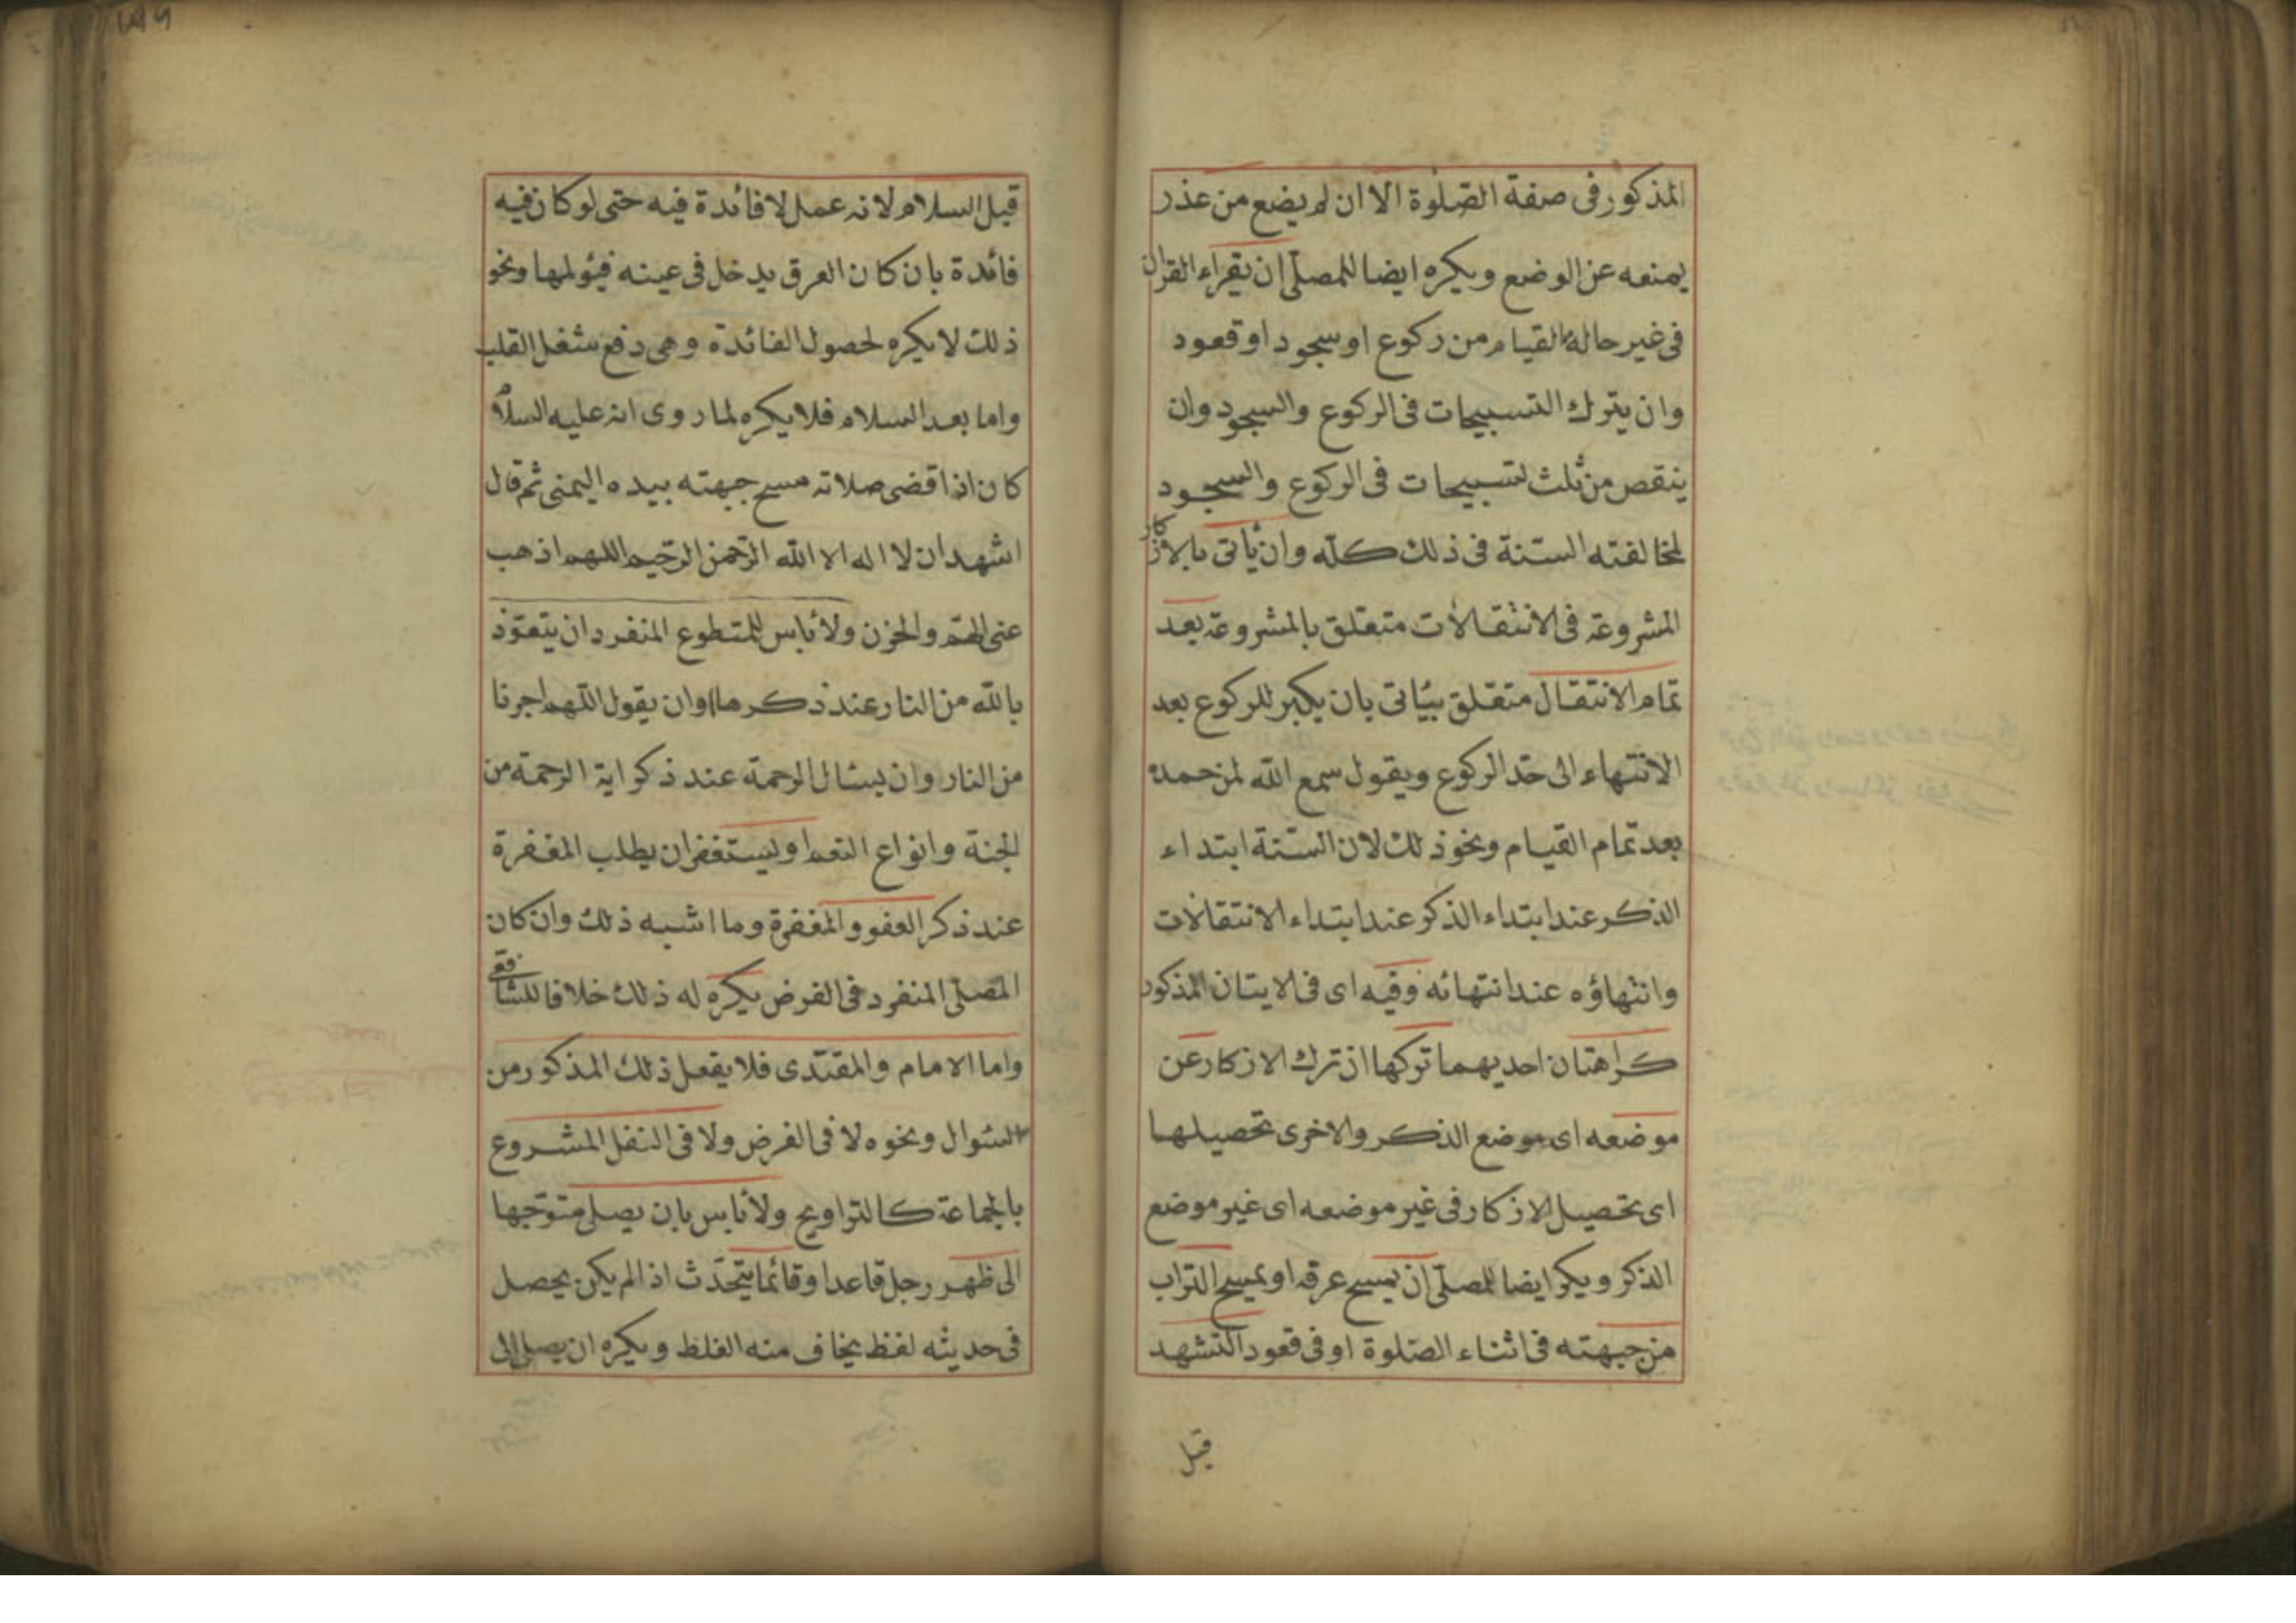 المذكور فى صفة الصلوة الا ان لم يضع من عذر
يمنعه عن الوضع ويكره ايضا للمصلى ان يقراء القران
فى غير حالة القيام من ركوع او سجود او قعود
وان يترك التسبيحات فى الركوع والسجود وان
ينقص من ثلث تسبيحات فى الركوع والسجود
لمخالفته السنة فى ذلك كله وان يأتى بالاذكار
المشروعة فى الانتقالات متعلق بالمشروعة بعد
تمام الانتقال متعلق بيأتى بان يكبر للركوع بعد
الانتهاء الى حد الركوع ويقول سمع الله لمن حمده
بعد تمام القيام ونحو ذلك لان السنة ابتداء
الذكر عند ابتداء الذكر عند ابتداء الانتقالات
وانتهاؤه عند انتهائه وفيه اى فى الايتان المذكور
كراهتان احديهما تركها اذ ترك الاذكار عن
موضعه اى موضع الذكر والاخرى تحصيلها
اى تحصيل الاذكار فى غير موضعه اى غير موضع
الذكر ويكره ايضا للمصلى ان يمسح عرقه او يمسح التراب
من جبهته فى اثناء الصلوة او فى قعود التشهد
قبل
قبل السلام لانه عمل لا فائدة فيه حتى لو كان فيه
فائدة بان كان العرق يدخل فى عينه فيؤلمها ونحو
ذلك لا يكره لحصول الفائدة وهى دفع شغل القلب
واما بعد السلام فلا يكره لما روى انه عليه السلام
كان اذا قضى صلاته مسح جبهته بيده اليمنى ثم قال
اشهد ان لا اله الا الله الرحمن الرحيم اللهم اذهب
عنى الهم والحزن ولا بأس للمتطوع المنفرد ان يتعوذ
بالله من النار عند ذكرها وان يقول اللهم اجرنا
من النار وان يسئال الرحمة عند ذكر اية الرحمة من
الجنة وانواع النعم او يستغفر ان يطلب المغفرة
عند ذكر العفو والمغفرة وما اشبه ذلك وان كان
المصلى المنفرد فى الفرض يكره له ذلك خلافا للشافعى
واما الامام والمقتدى فلا يفعل ذلك المذكور من
السئوال ونحوه لا فى الفرض ولا فى النفل المشروع
بالجماعة كالتراويح ولا بأس بان يصلى متوجها
الى ظهر رجل قاعدا وقائما يتحدث اذا لم يكن يحصل
فى حديثه لفظ يخاف منه الغلط ويكره ان يصلى الى